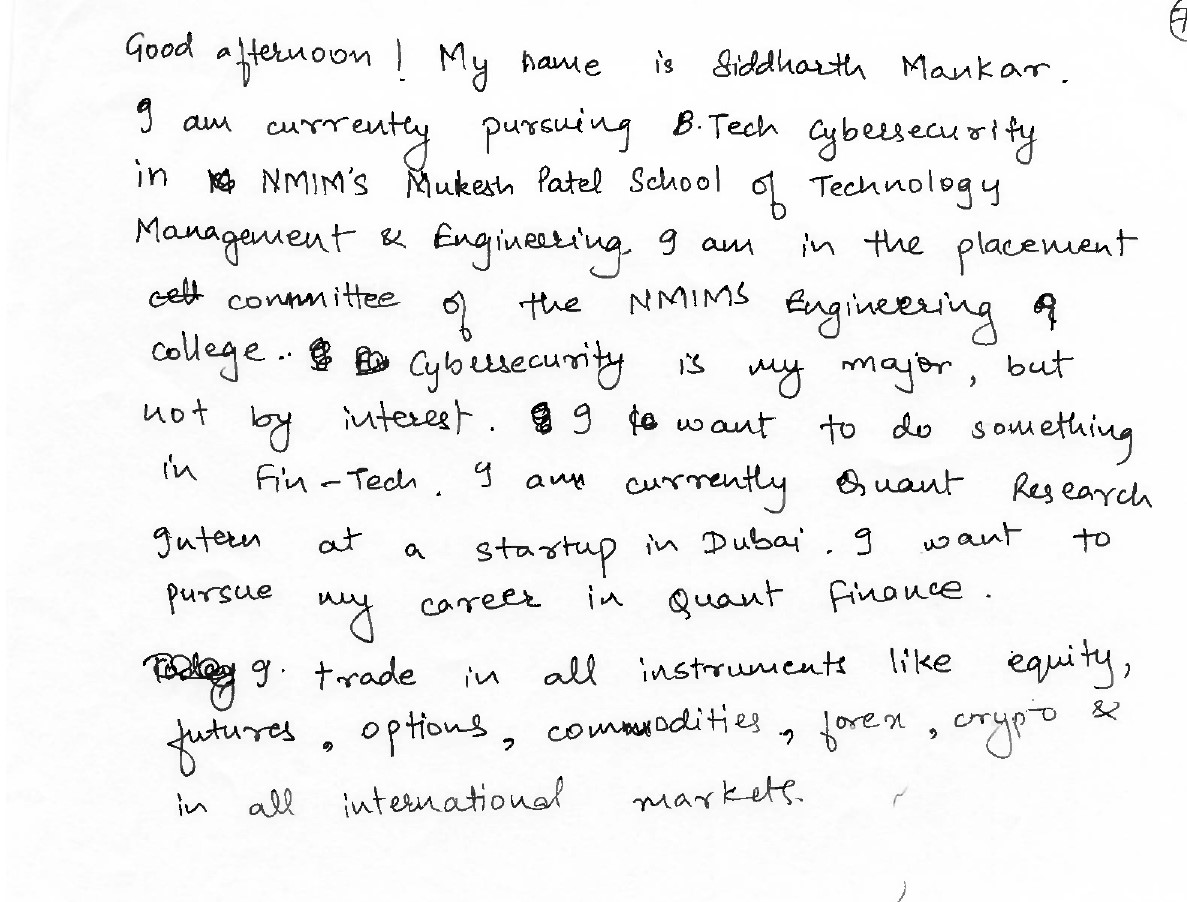 Good afternoon! My name is Siddharth Mankar.
I am currently pursuing B.Tech Cybersecurity
in NMIM's Mukesh Patel School of Technology
Management & Engineering. I am in the placement
cell committee of the NMIMS Engineering
college.. Cybersecurity is my major, but
not by interest. I want to do something
in Fin-Tech. I am currently Quant Research
Intern at a startup in Dubai. I want to
pursue my career in Quant finance.
Today I. trade in all instruments like equity,
futures, options, commodities, forex, crypto &
in all international markets.